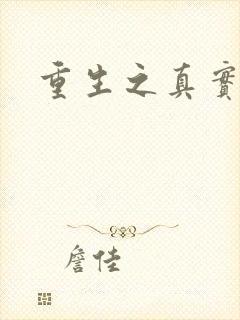 重生之真實
詹佳